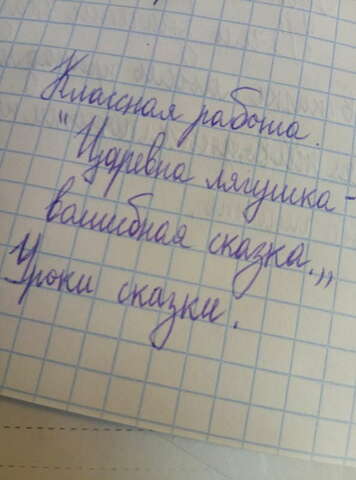 Классная работа.
"Царевна лягушка -
волшебная сказка.,,
Уроки сказки.